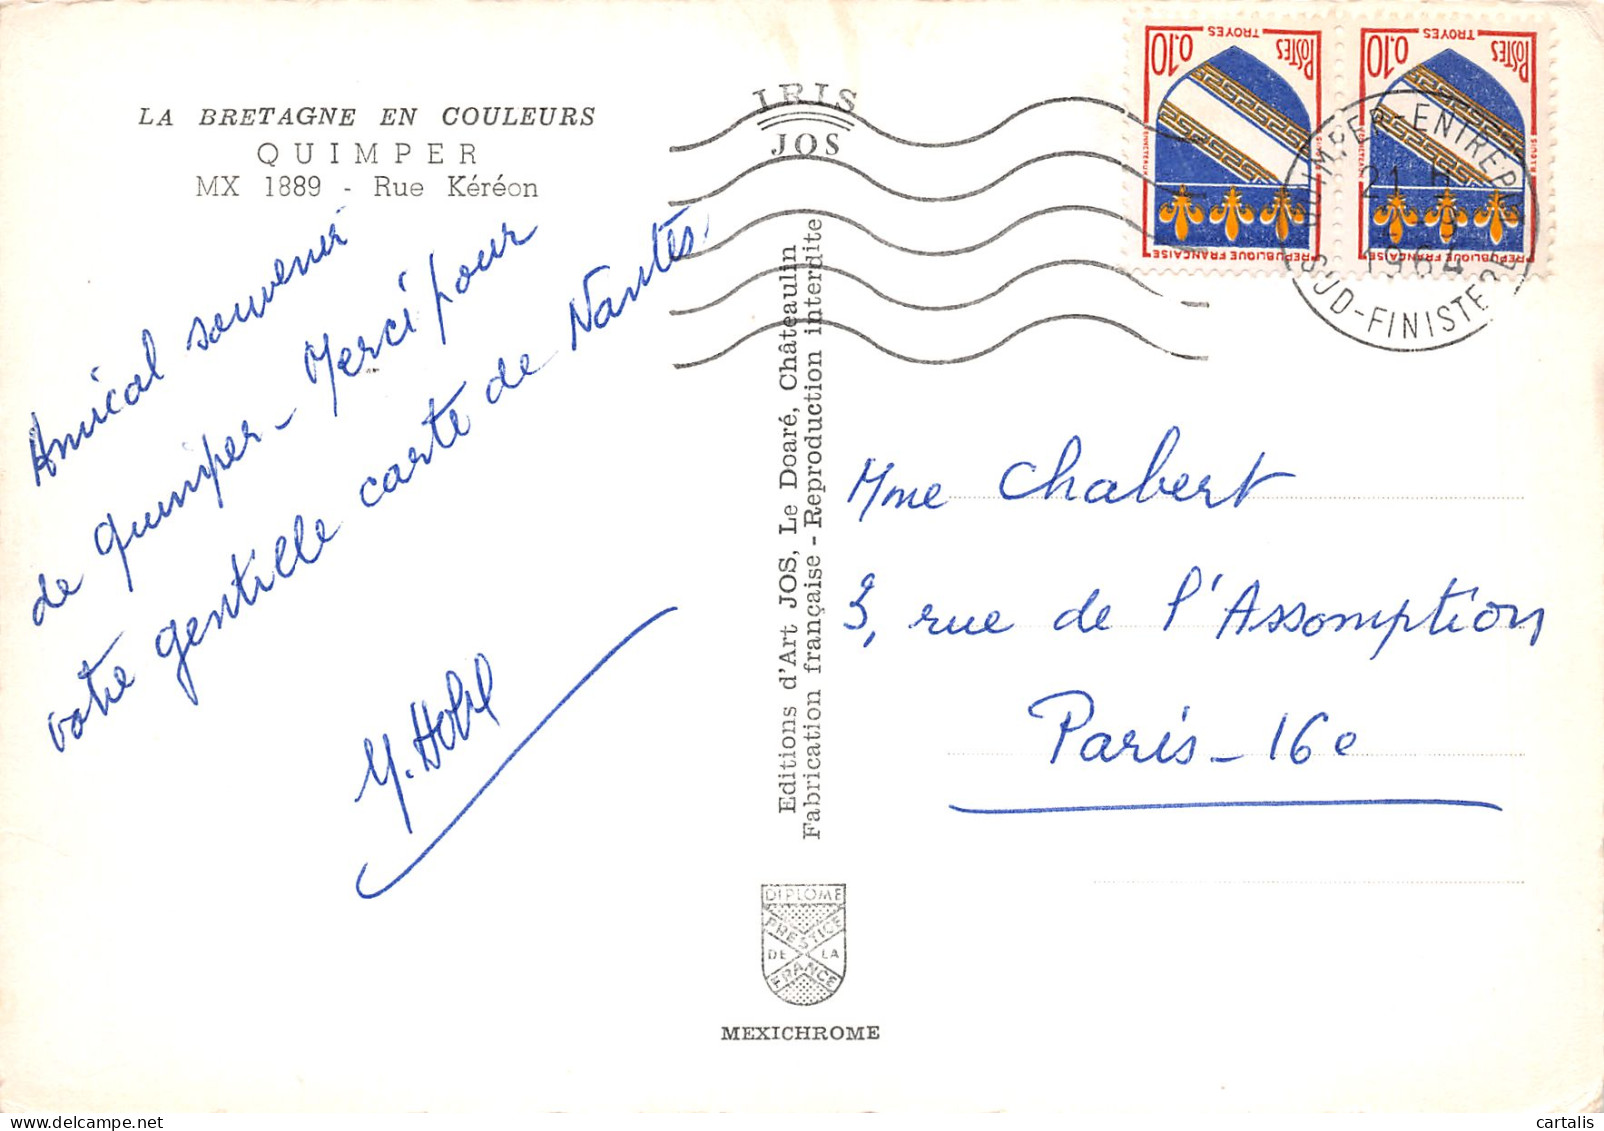 LA BRETAGNE EN COULEURS
QUIMPER
MX 1889 - Rue Kéréon
Amical souvenir
de Quimper - Merci pour
votre gentille carte de Nantes
IRIS
JOS
Editions d'Art JOS, Le Doaré, Châteaulin
Fabrication française - Reproduction interdite
DIPLOME
PRESTIGE
DE LA
FRANCE
MEXICHROME
POSTES 0,10
TROYES
REPUBLIQUE FRANÇAISE
POSTES 0,10
TROYES
REPUBLIQUE FRANÇAISE
QUIMPER-ENTREPÔT
21 H
1964
SUD-FINISTERE
Mme Chabert
3, rue de l'Assomption
Paris - 16e
cartalis www.delcampe.net